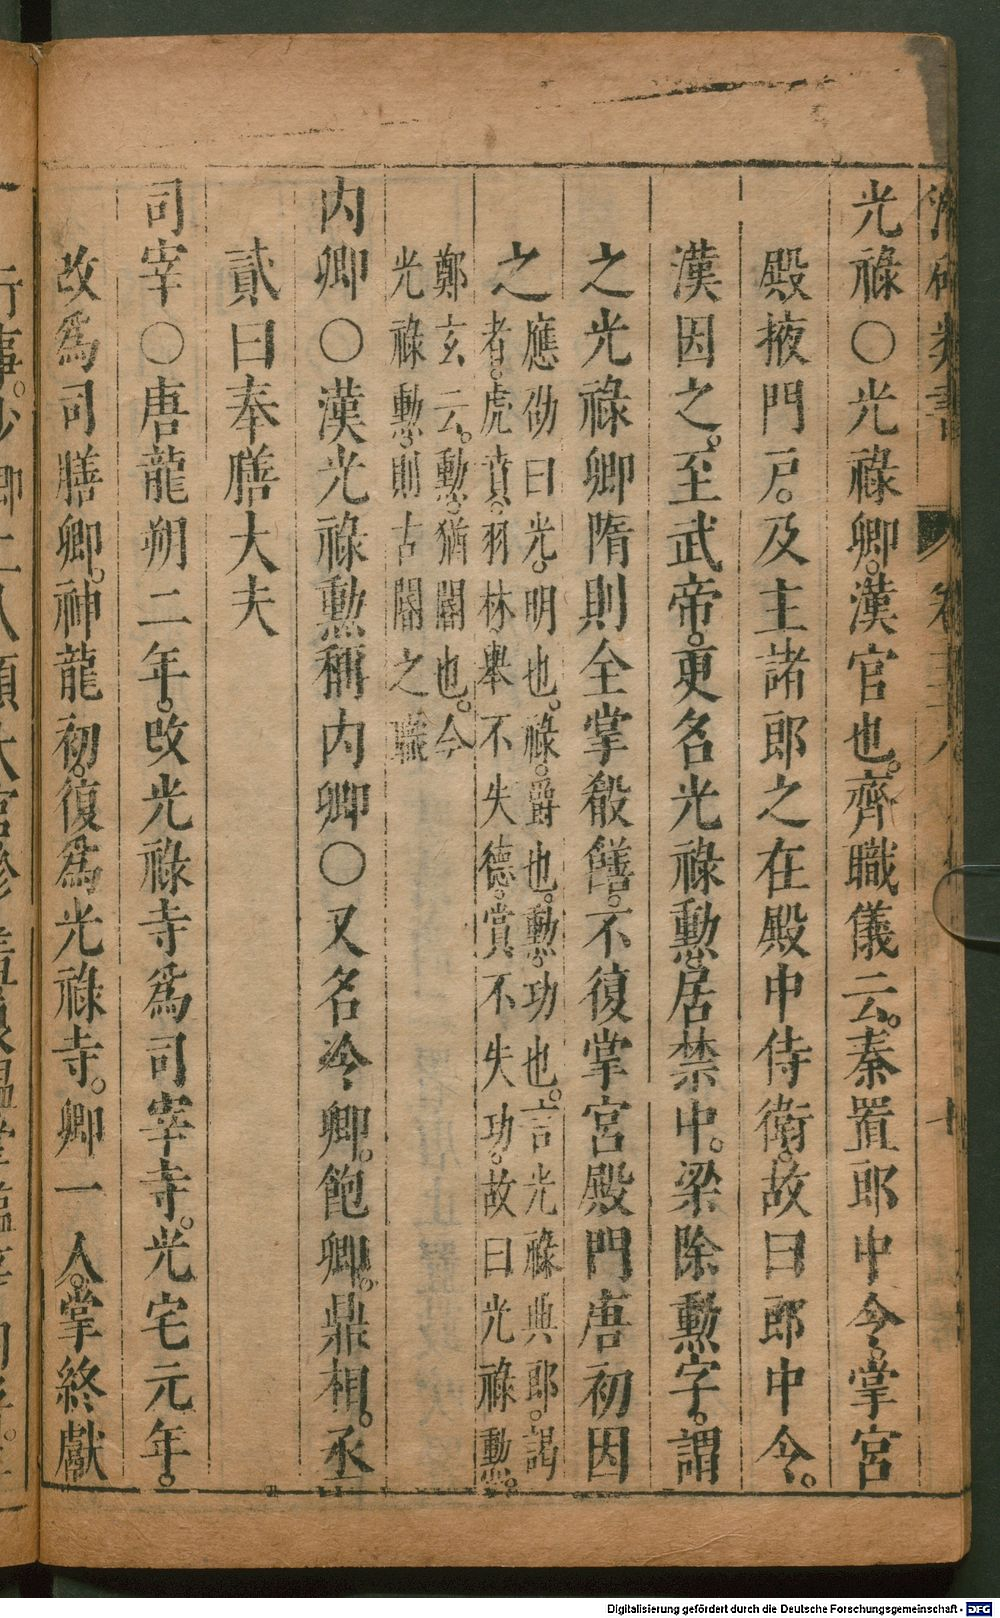 光祿〇光祿卿。漢官也。齊職儀云。秦置郎中令。掌宮
殿掖門戸。及主諸郎之在殿中侍衛。故曰郎中令。
漢因之。至武帝。更名光祿勳。居禁中。梁除勳字。謂
之光祿卿隋則全掌殽饍。不復掌宮殿門唐初因
之
應劭曰光。明也。祿。爵也。勳。功也。言光祿典郎。謁
者。虎賁。羽林舉不失德。賞不失功。故曰光祿勳。
鄭玄云。勳。猶閽也。今
光祿勳。則古閽之職
内卿〇漢光祿勳稱内卿〇又名冷卿。飽卿。鼎相。丞
貳曰奉膳大夫
司宰〇唐龍朔二年。改光祿寺爲司宰寺。光宅元年。
改爲司膳卿。神龍初。復爲光祿寺。卿一人。掌終獻
Digitalisierung gefördert durch die Deutsche Forschungsgemeinschaft - DFG